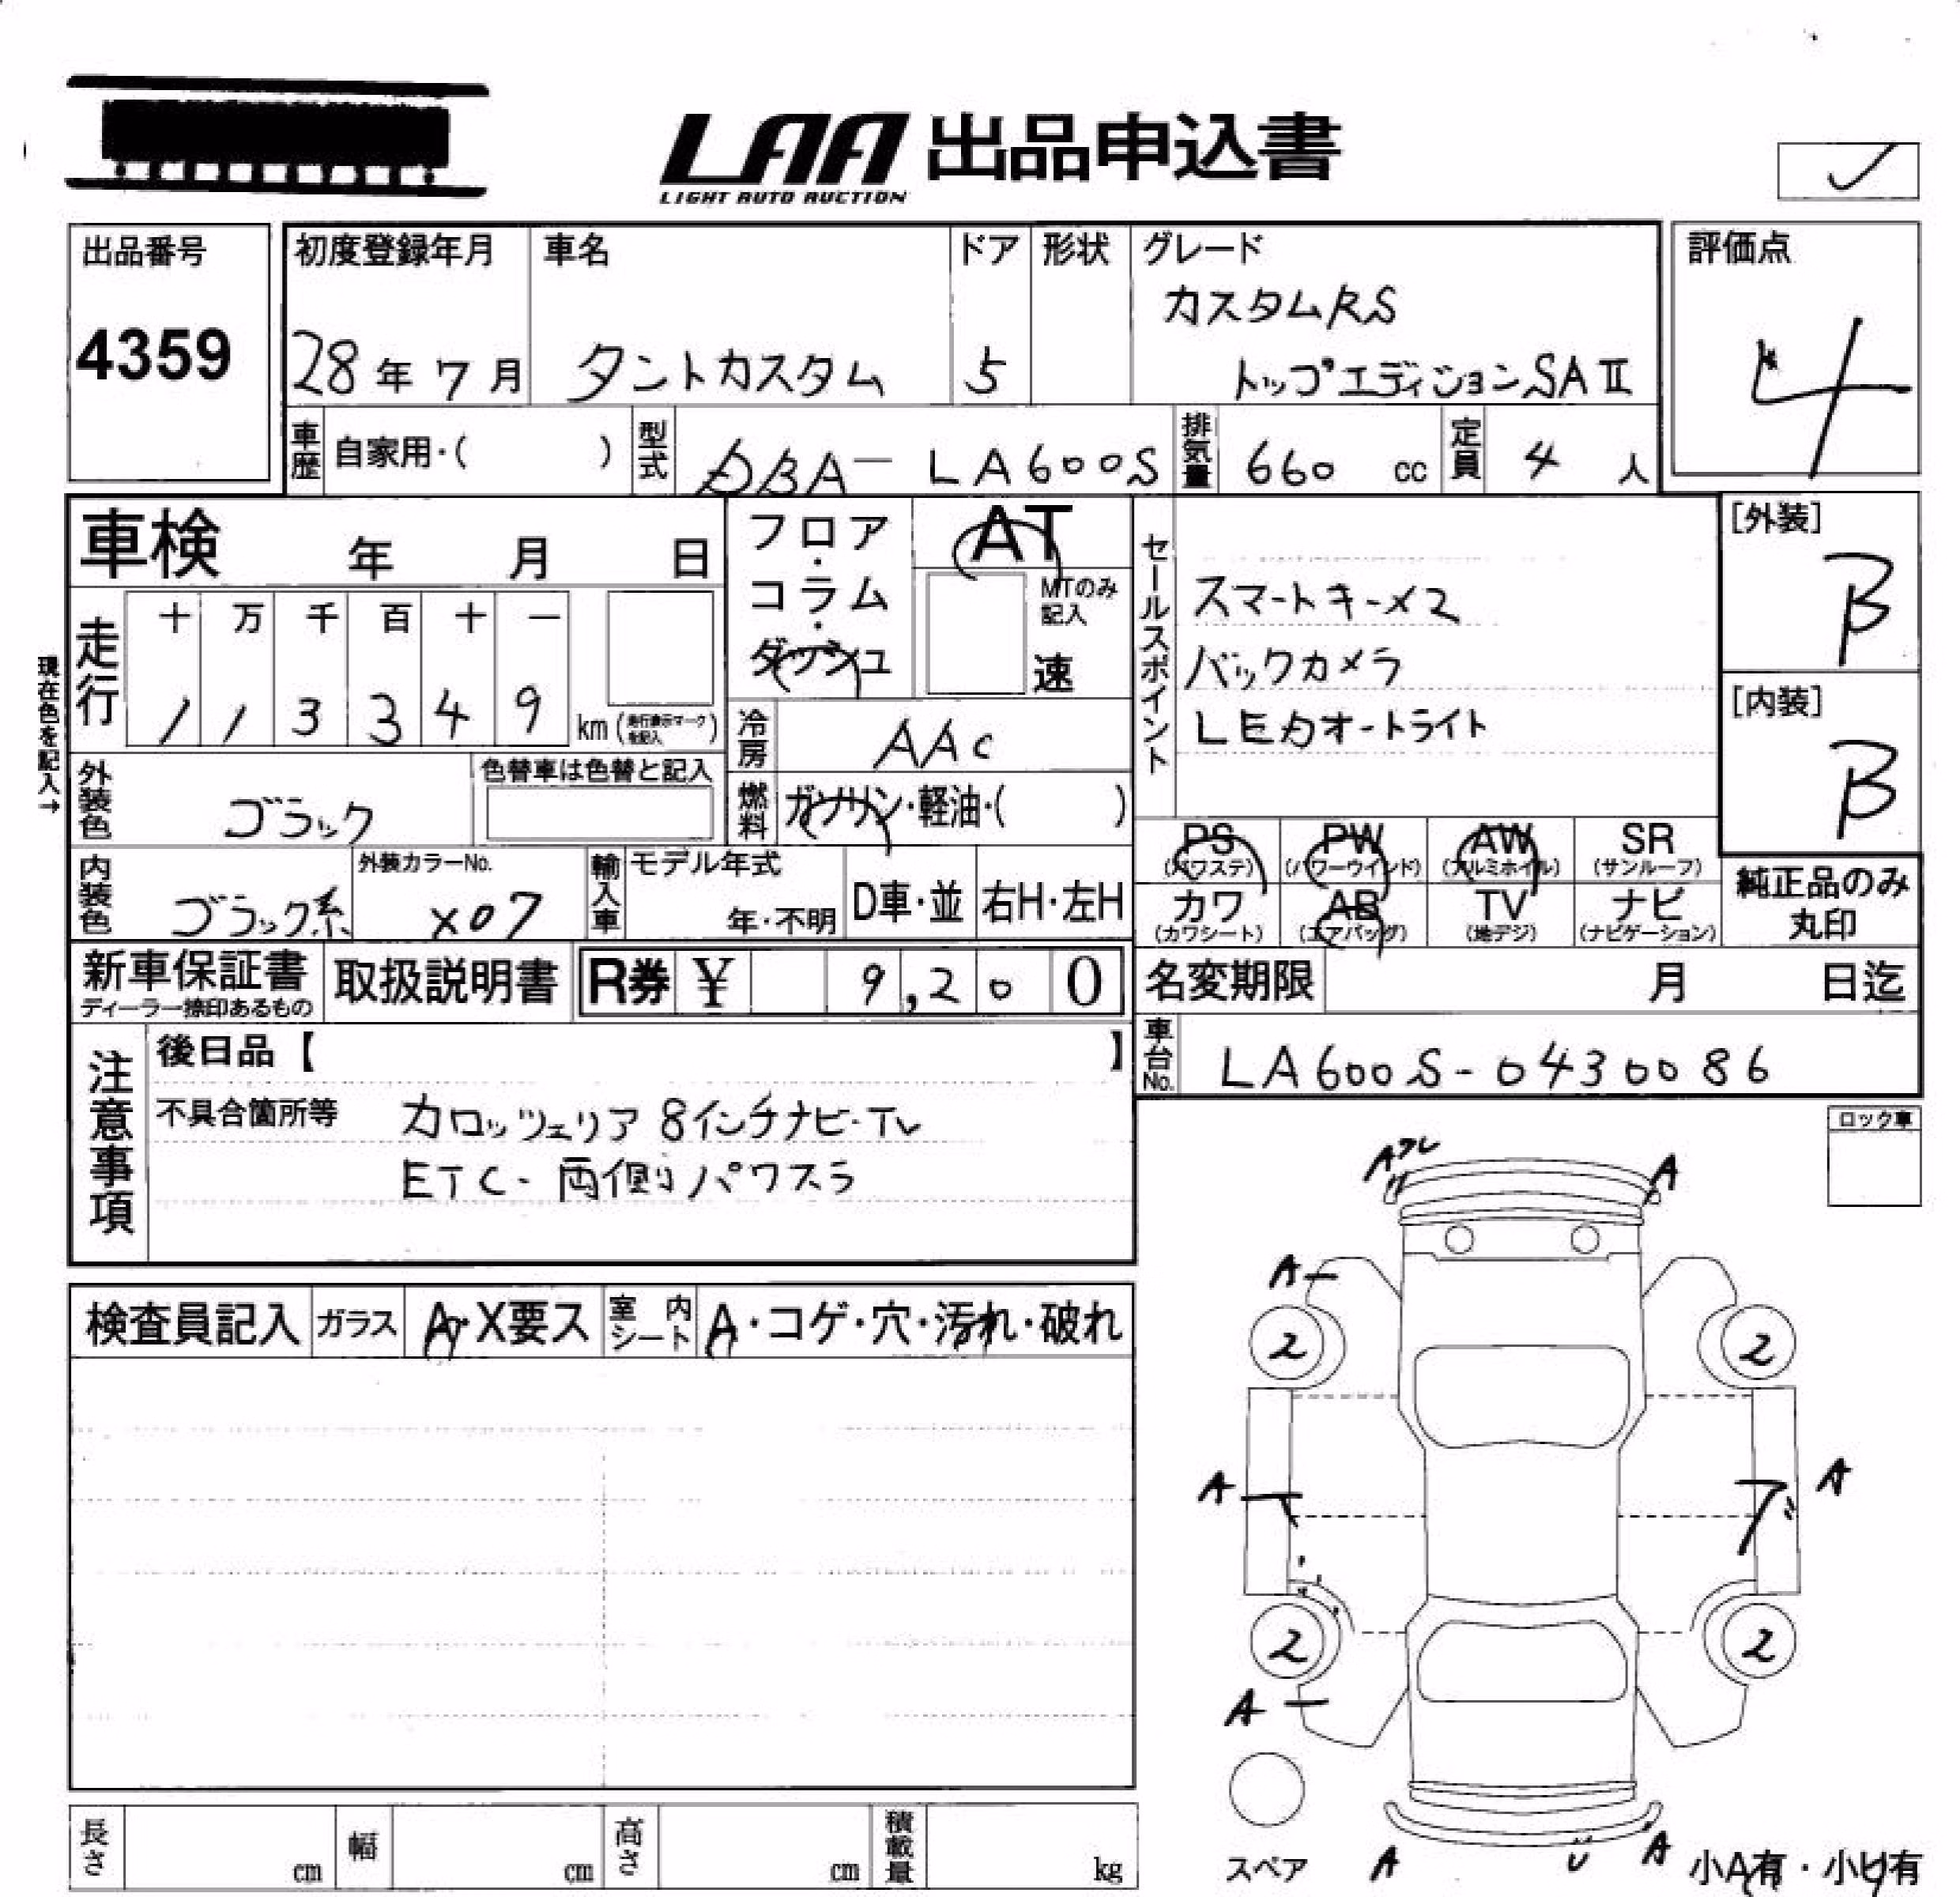 LAA 出品申込書
LIGHT AUTO AUCTION
出品番号
4359
初度登録年月
28年7月
車名
タントカスタム
ドア
5
形状
グレード
カスタムRS
トップエディションSAⅡ
評価点
4
車歴
自家用・( )
型式
DBA- LA600S
排気量
660 cc
定員
4 人
車検 年 月 日
フロア・コラム・ダッシュ
AT
MTのみ記入
速
セールスポイント
スマートキー×2
バックカメラ
LEDオートライト
[外装]
B
[内装]
B
現在色を記入→
走行
十 万 千 百 十 一
1 1 3 3 4 9
km(走行表示マークを記入)
冷房
AAC
外装色
ブラック
色替車は色替と記入
燃料
ガソリン・軽油・( )
PS
(パワステ)
PW
(パワーウインド)
AW
(アルミホイル)
SR
(サンルーフ)
内装色
ブラック系
外装カラーNo.
X07
輸入車
モデル年式
年・不明
D車・並
右H・左H
カワ
(カワシート)
AB
(エアバッグ)
TV
(地デジ)
ナビ
(ナビゲーション)
純正品のみ
丸印
新車保証書
ディーラー捺印あるもの
取扱説明書
R券 ¥ 9,200
名変期限 月 日迄
注意事項
後日品【 】
車台No.
LA600S-0430086
不具合箇所等
カロッツェリア 8インチナビ・TV
ETC・両側パワスラ
ロック車
検査員記入
ガラス
A・X要ス
室内シート
A・コゲ・穴・汚れ・破れ
A
A
A
2
2
A
A
2
2
A
スペア
A
U
A
小A有・小U有
長さ
cm
幅
cm
高さ
cm
積載量
kg